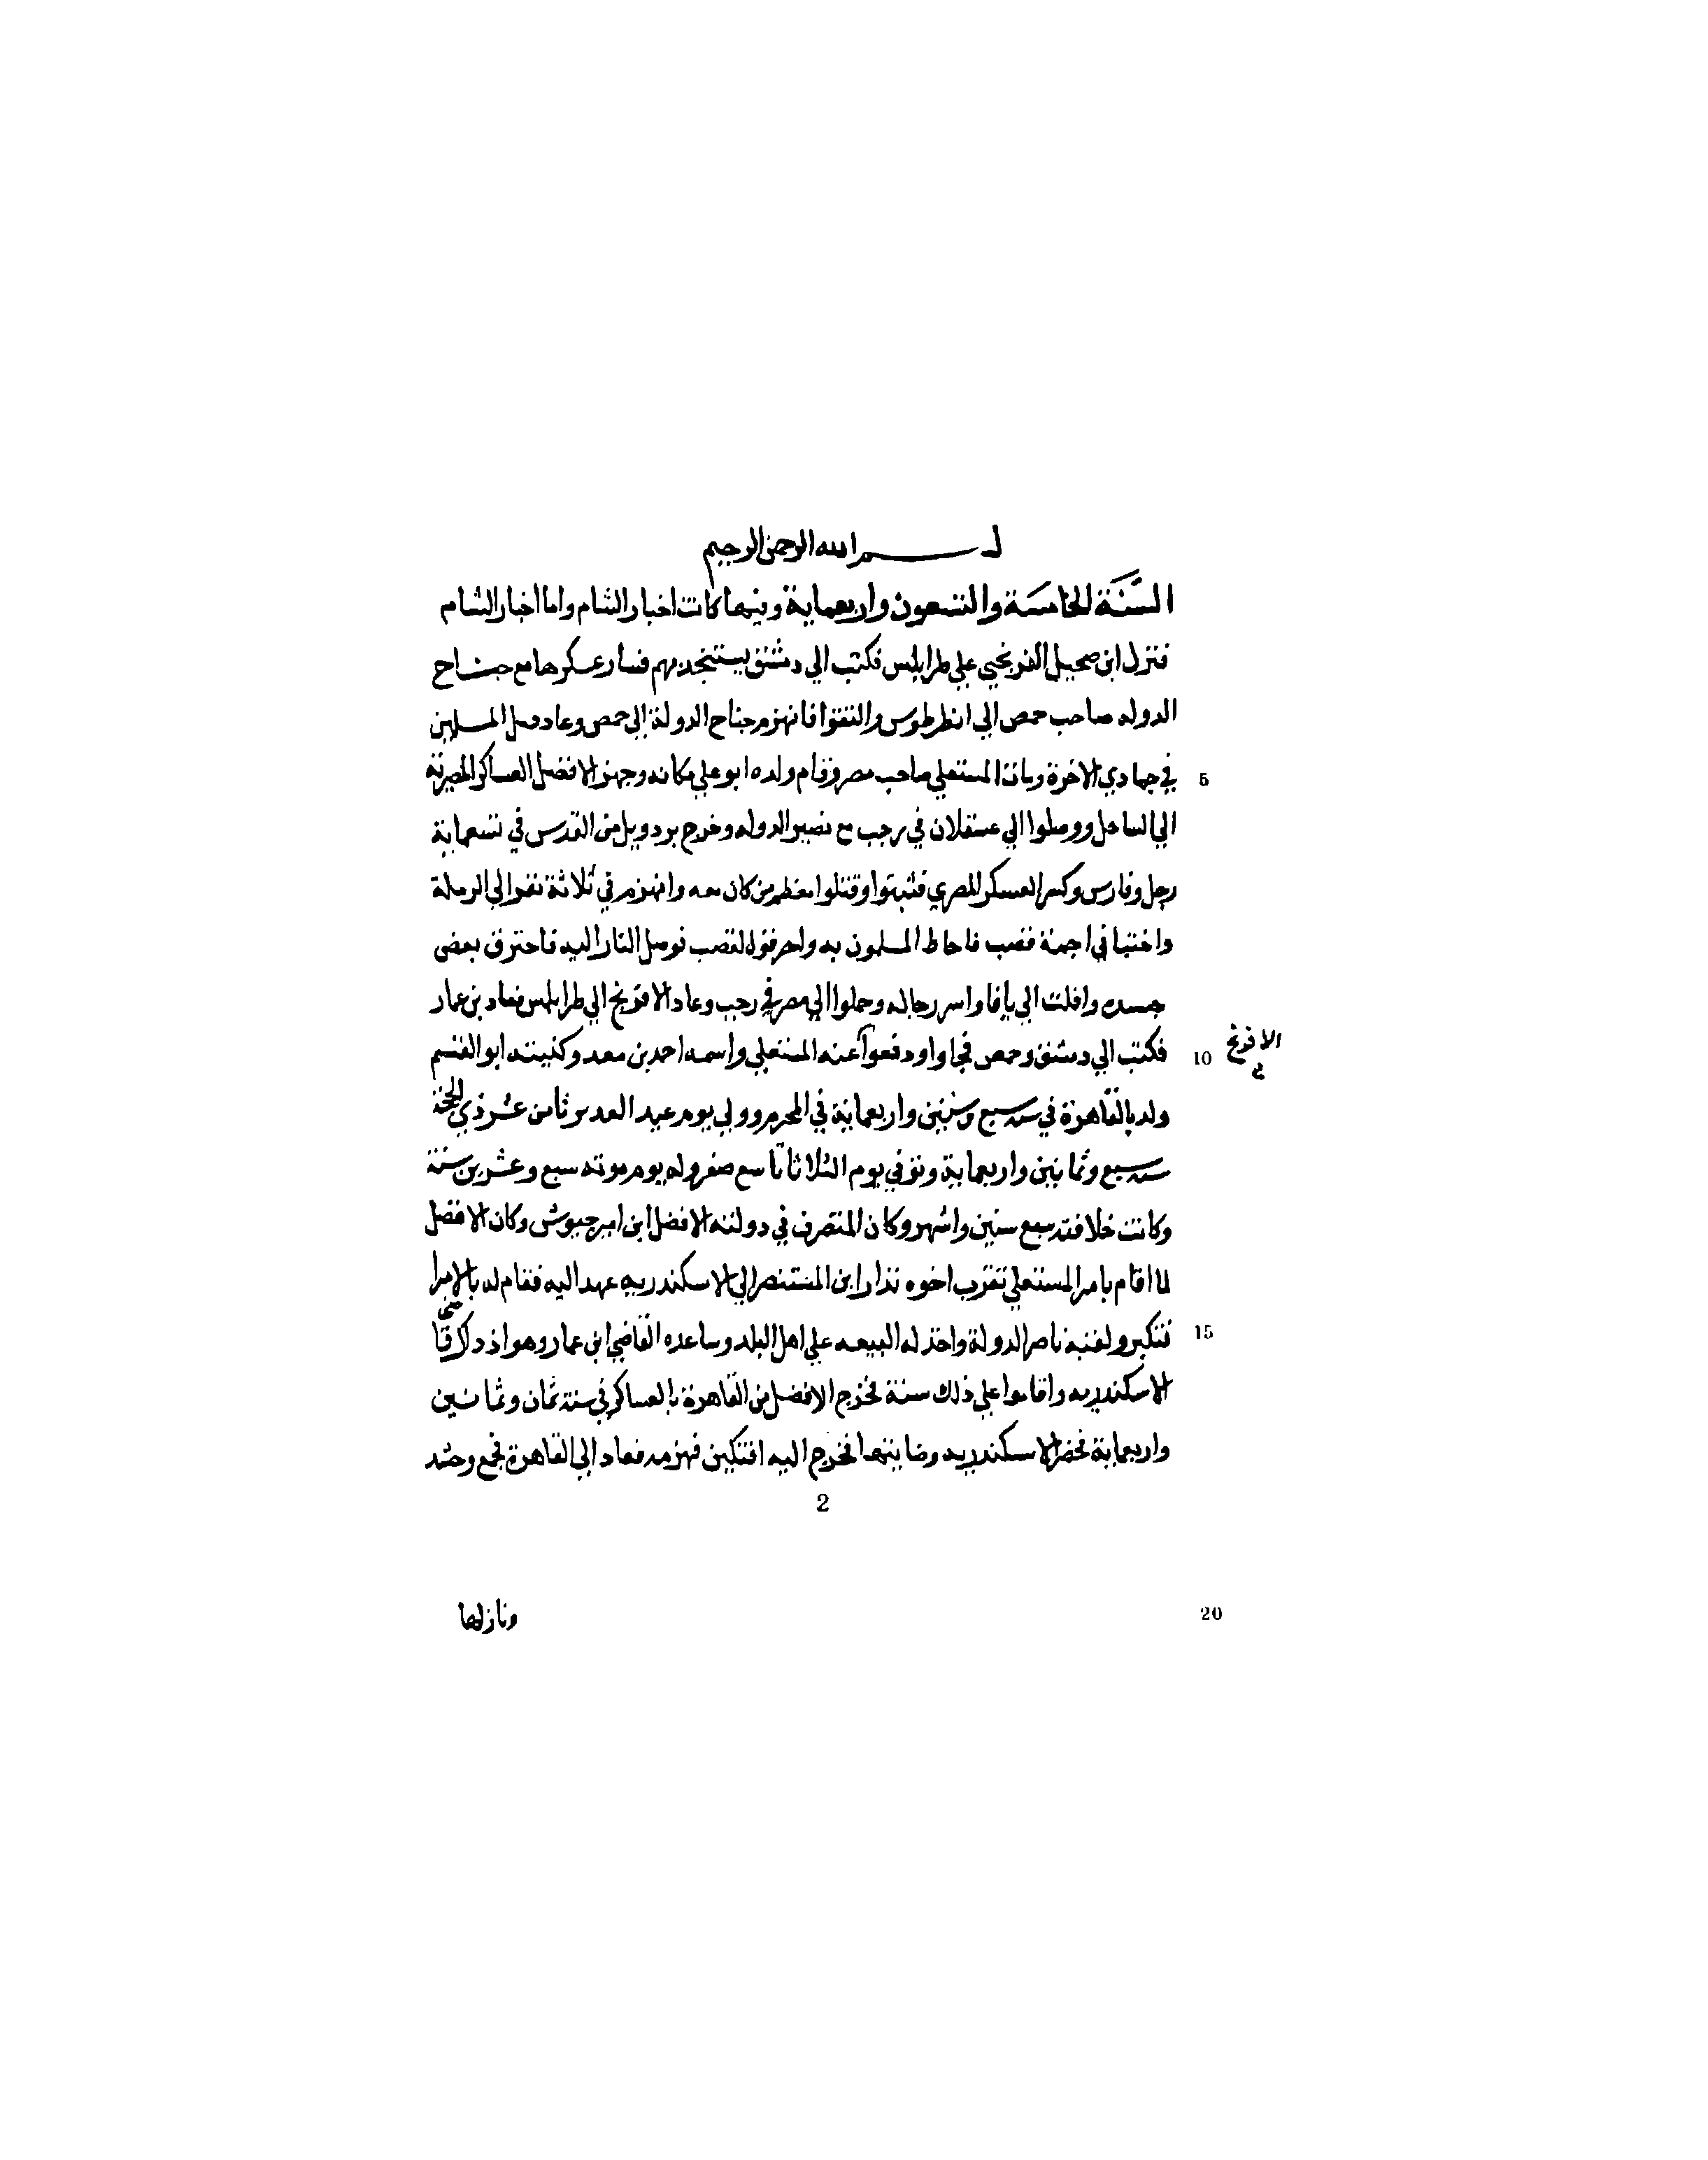 بسم الله الرحمن الرحيم
السنة الخامسة والتسعون واربعماية وفيها كانت اخبار الشام واما اخبار الشام
فنزل ابن صنجيل الفرنجي علي طرابلس فكتب الي دمشق يستنجد بهم فسار عسكرها مع جناح
الدوله صاحب حمص الي انطرطوس والتقوا فانهزم جناح الدولة الي حمص وعاد المسلمين
5 في جمادي الاخرة ومات المستعلي صاحب مصر وقام ولده ابو علي مكانه وجهز الافضل العساكر المصريه
الي الساحل ووصلوا الي عسقلان في رجب مع نصير الدوله وخرج بردويل من القدس في تسعماية
رجل وفارس وكسر العسكر المصري فثبتوا وقتلوا معظم من كان معه وانهزم في ثلاثة نفر الي الرملة
واختبا في اجمة قصب فاحاط المسلمون به واحرقوا القصب فوصل النار اليه فاحترق بعض
جسده وافلت الي يافا واسر رجاله وحملوا الي مصر في رجب وعاد الافرنج الي طرابلس فعاد بن عمار
10 فكتب الي دمشق وحمص فجاوا ودفعوا عنه المستعلي واسمه احمد بن معد وكنيته ابو القسم
الافرنج
ولد بالقاهرة في سنه سبع وستين واربعماية في المحرم وولي يوم عيد الغدير ثامن عشر ذي الحجة
سنه سبع وثمانين واربعماية وتوفي يوم الثلاثا تاسع صفر وله يوم موته سبع وعشرين سنة
وكانت خلافته سبع سنين واشهر وكان المتصرف في دولته الافضل ابن امير جيوش وكان الافضل
لما اقام بامر المستعلي تقرب اخوه نذار ابن المستنصر الي الاسكندريه عهد اليه فقام له بالامرا
15 فتكبر ولقبه ناصر الدولة واخذ له البيعه علي اهل البلد وساعده القاضي ابن عمار وهو اذ داك قاضي
الاسكندريه واقاموا علي ذلك سنة فخرج الافضل من القاهرة بالعساكر في سنة ثمان وثمانين
واربعماية فحضر الاسكندريه وضايقها فخرج اليه افتكين فهزمه فعاد الي القاهرة فجمع وحشد
2
20 ونازلها